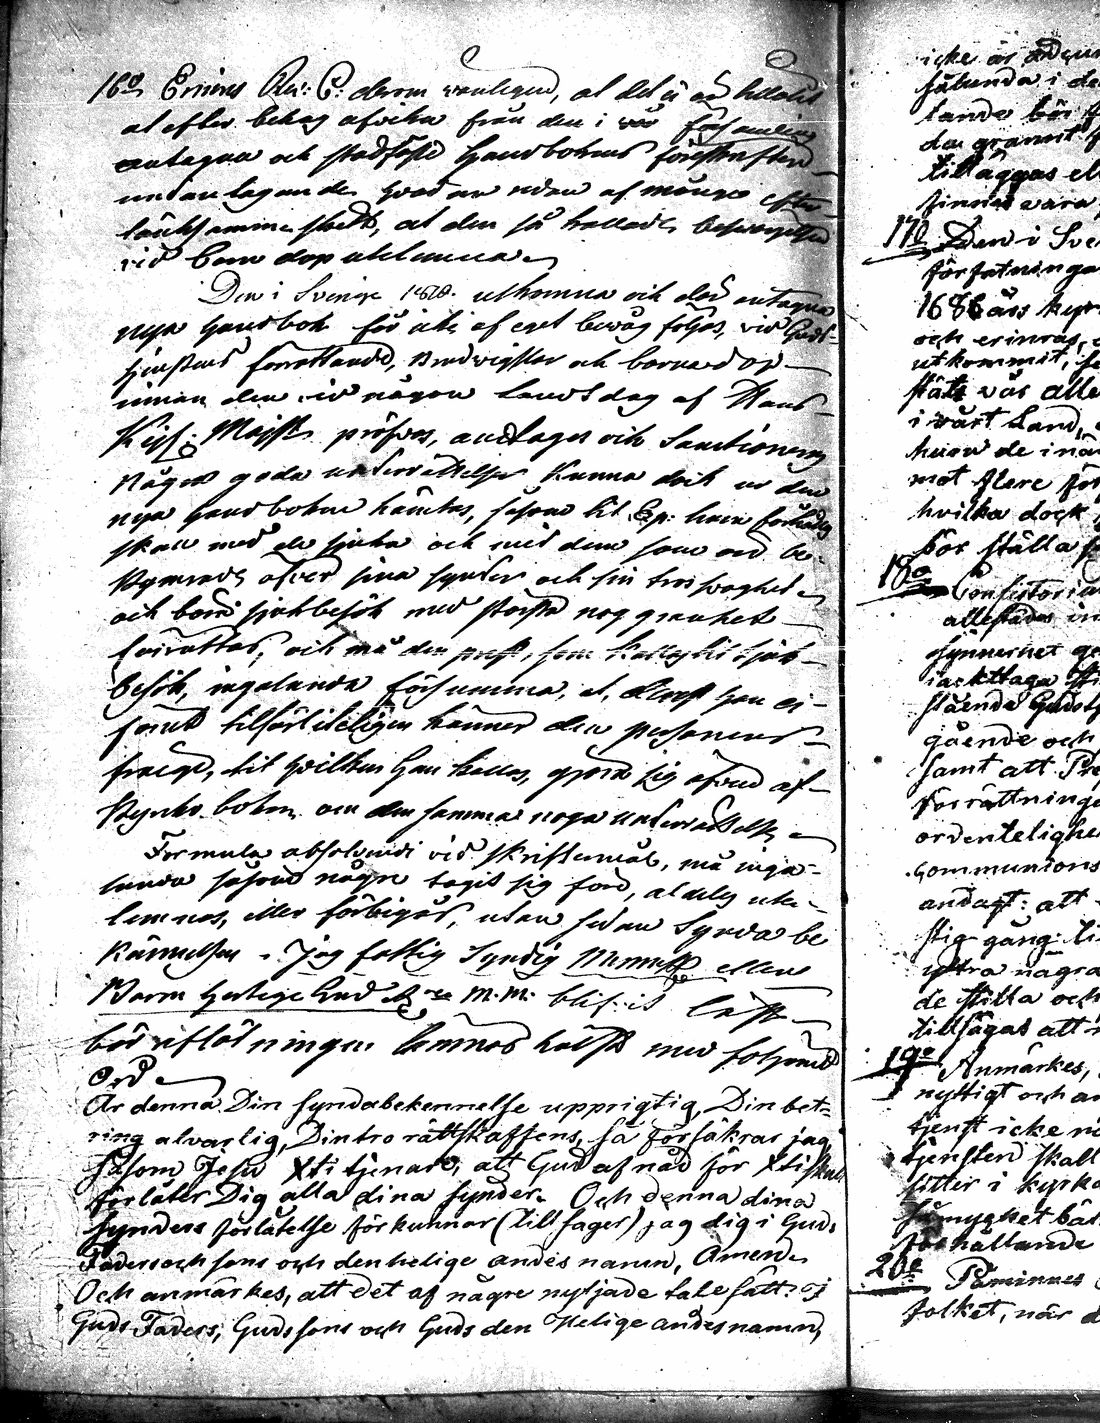 16o Erinras Rev: C: derom vänligen, at det ei är tillåtit
at efter behag afvika från den i vår församling
antagna och stadfäste Handbokens föreskrifter
undantagandes hvad av redan af många
skedt, at den så kallade besvärjelsen
vid barn dop utelemnas
Den i Sverige utkomna och der antagna
nya Handbok får icke af eget bevåg följas, vid Guds-
tjenstens förrättande, Brudvigslar och barnadop
innan den vid någon Landtdag af Hans
Kejs: Maj:st pröfvas, antages och Sanctioneras
Några goda underrättelser kunna dock ur den
nya handboken hämtas, såsom til Ex: huru förhållas
skall med de sjuka och med dem som äro be-
kymrade öfver sina synder och sin tros svaghet
och böra sjukbesök med största noggranhet
förrättas, och må den prest, som kallas til sjuk-
besök, ingalunda försumma, at, derest han ei
förut tilförliteligen känner den personens
frejd, til hvilken han kallas, göra sig af
Kyrko boken om densamma noga underrättelse
Formula absolvendi vid skriftermål, må inga-
lunda såsom någre tagit sig före, aldeles ute-
lemnas, eller förbigås, utan sedan Synda be
kännelsen - Jag fattig Syndig Menniska eller
Barm Hertige Gud &c m.m. blifvit läst
bör aflösningen lämnas hälst med följande
Ord
Är denna Din syndabekennelse upprigtig, Din bet-
ring alvarlig, Din tro rättskaffens, så försäkrar jag
såsom Jesu Xti tjenare, att Gud af nåd för Xti skull
förlåter Dig alla dina synder. Och denna dina
synders förlåtelse förkunnar (tillsager) jag dig i Guds
Faders och sons och den helige andes namn, Amen.
Och anmärkes, att det af någre nytjade talesätt: i
Guds Faders, Guds sons och Guds den Helige andes namn,
icke är
sålunda i de
lande bör
da grannt
tilläggas el
finnes vara
17o Den i Sve
författninga
1686 års kyr
och erinras,
utkommit, så
städs vår alle
i vårt Land,
huru de inä
mot flere för
hvilka dock
bör ställa
18o Consistorium
allestädes in
synnerhet ge
iackttaga
stående Guds
gående och
samt att Pre
förrättninge
ordentelighe
communions
andagt: att
stig gång: ti
yttra några
de stilla och
tillsägas att
19o Anmärkes,
nyttigt och an
tjenst icke m
tjensten skall
sitter i kyrko
så mycket bät
förhållande
20o Påminnes
folket, när d